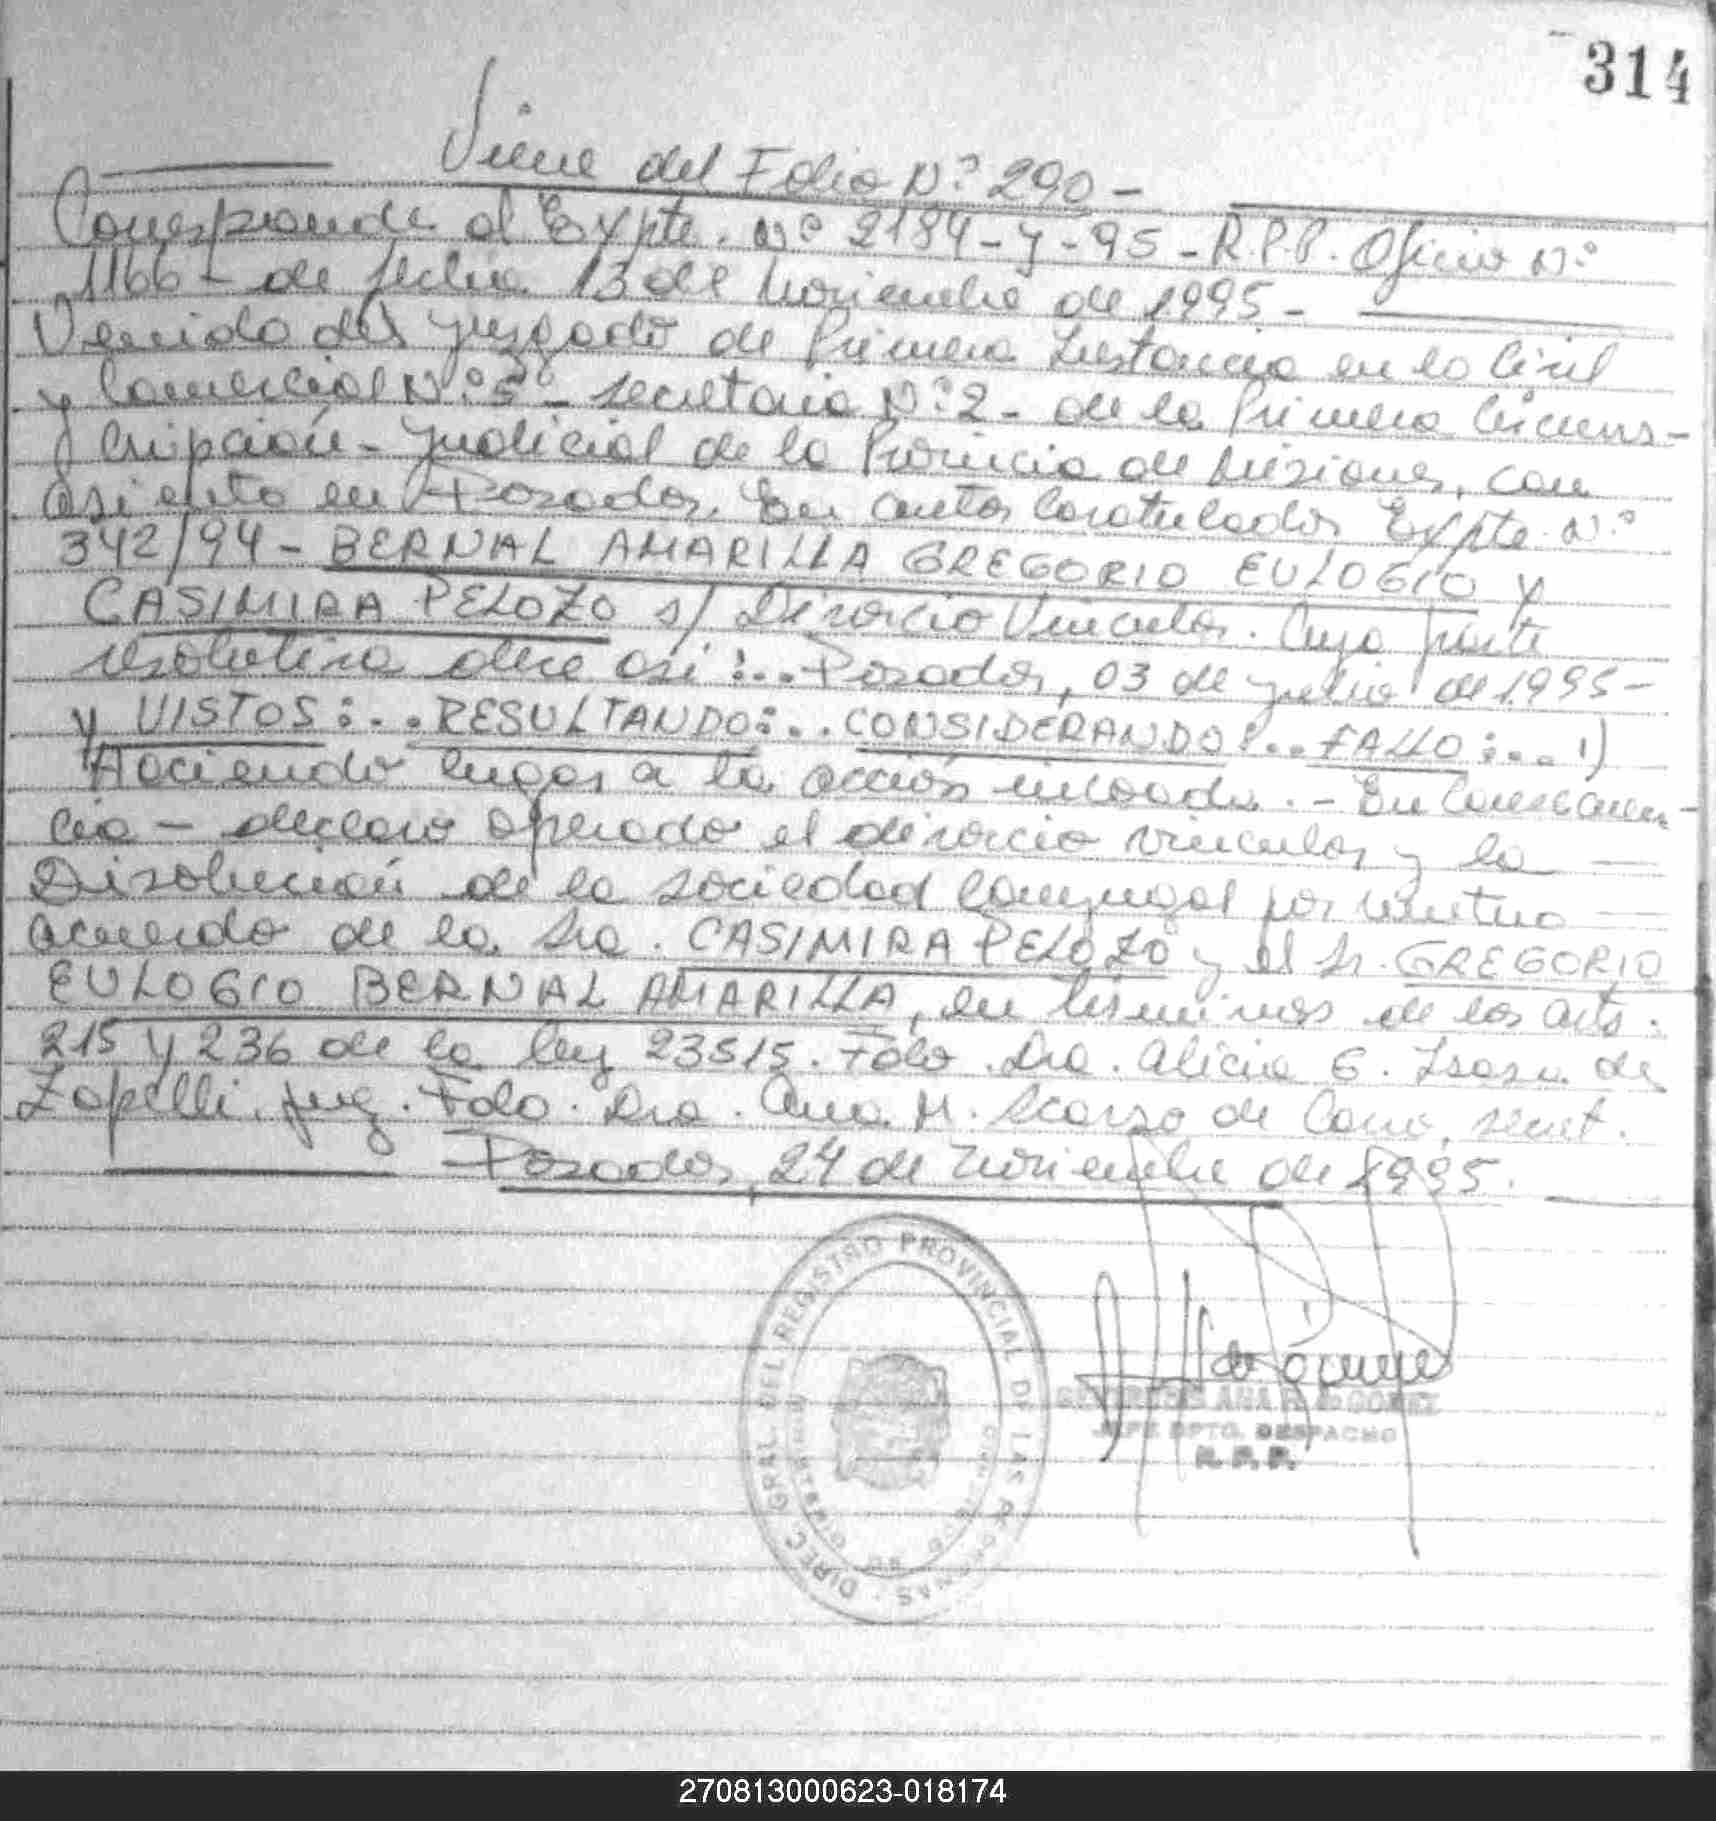 314
Viene del Folio Nº 290 -
Corresponde al Expte. Nº 2184-Y-95 - R.P.P. Oficio Nº
1166 - de fecha 13 del Noviembre de 1995 -
Venido del Juzgado de Primera Instancia en lo Civil
y Comercial Nº 5 - secretaria Nº 2 - de la Primera Circuns-
cripción - Judicial de la Provincia de Misiones, con
asiento en Posadas. En autos caratulados Expte. Nº
342/94 - BERNAL AMARILLA GREGORIO EULOGIO y
CASIMIRA PELOZO s/ Divorcio Vincular. Cuya parte
resolutiva dice así:... Posadas, 03 de julio de 1.995 -
y VISTOS:... RESULTANDO:... CONSIDERANDO:... FALLO:... 1)
Haciendo lugar a la acción incoada. - En Consecuen-
cia - declaro operado el divorcio vincular y la
Disolución de la sociedad conyugal por mutuo
acuerdo de la Sra. CASIMIRA PELOZO y el Sr. GREGORIO
EULOGIO BERNAL AMARILLA, en términos de los arts.
215 y 236 de la ley 23515. Fdo. Dra. Alicia G. de
Zapelli. Juez. Fdo. Dra. Ana M. Scarzo de Cano, secret.
Posadas, 24 de Noviembre de 1995.
DIREC. GRAL. DEL REGISTRO PROVINCIAL DE LAS PERSONAS
ANA
JEFE DPTO. DESPACHO
R. P. P.
270813000623-018174